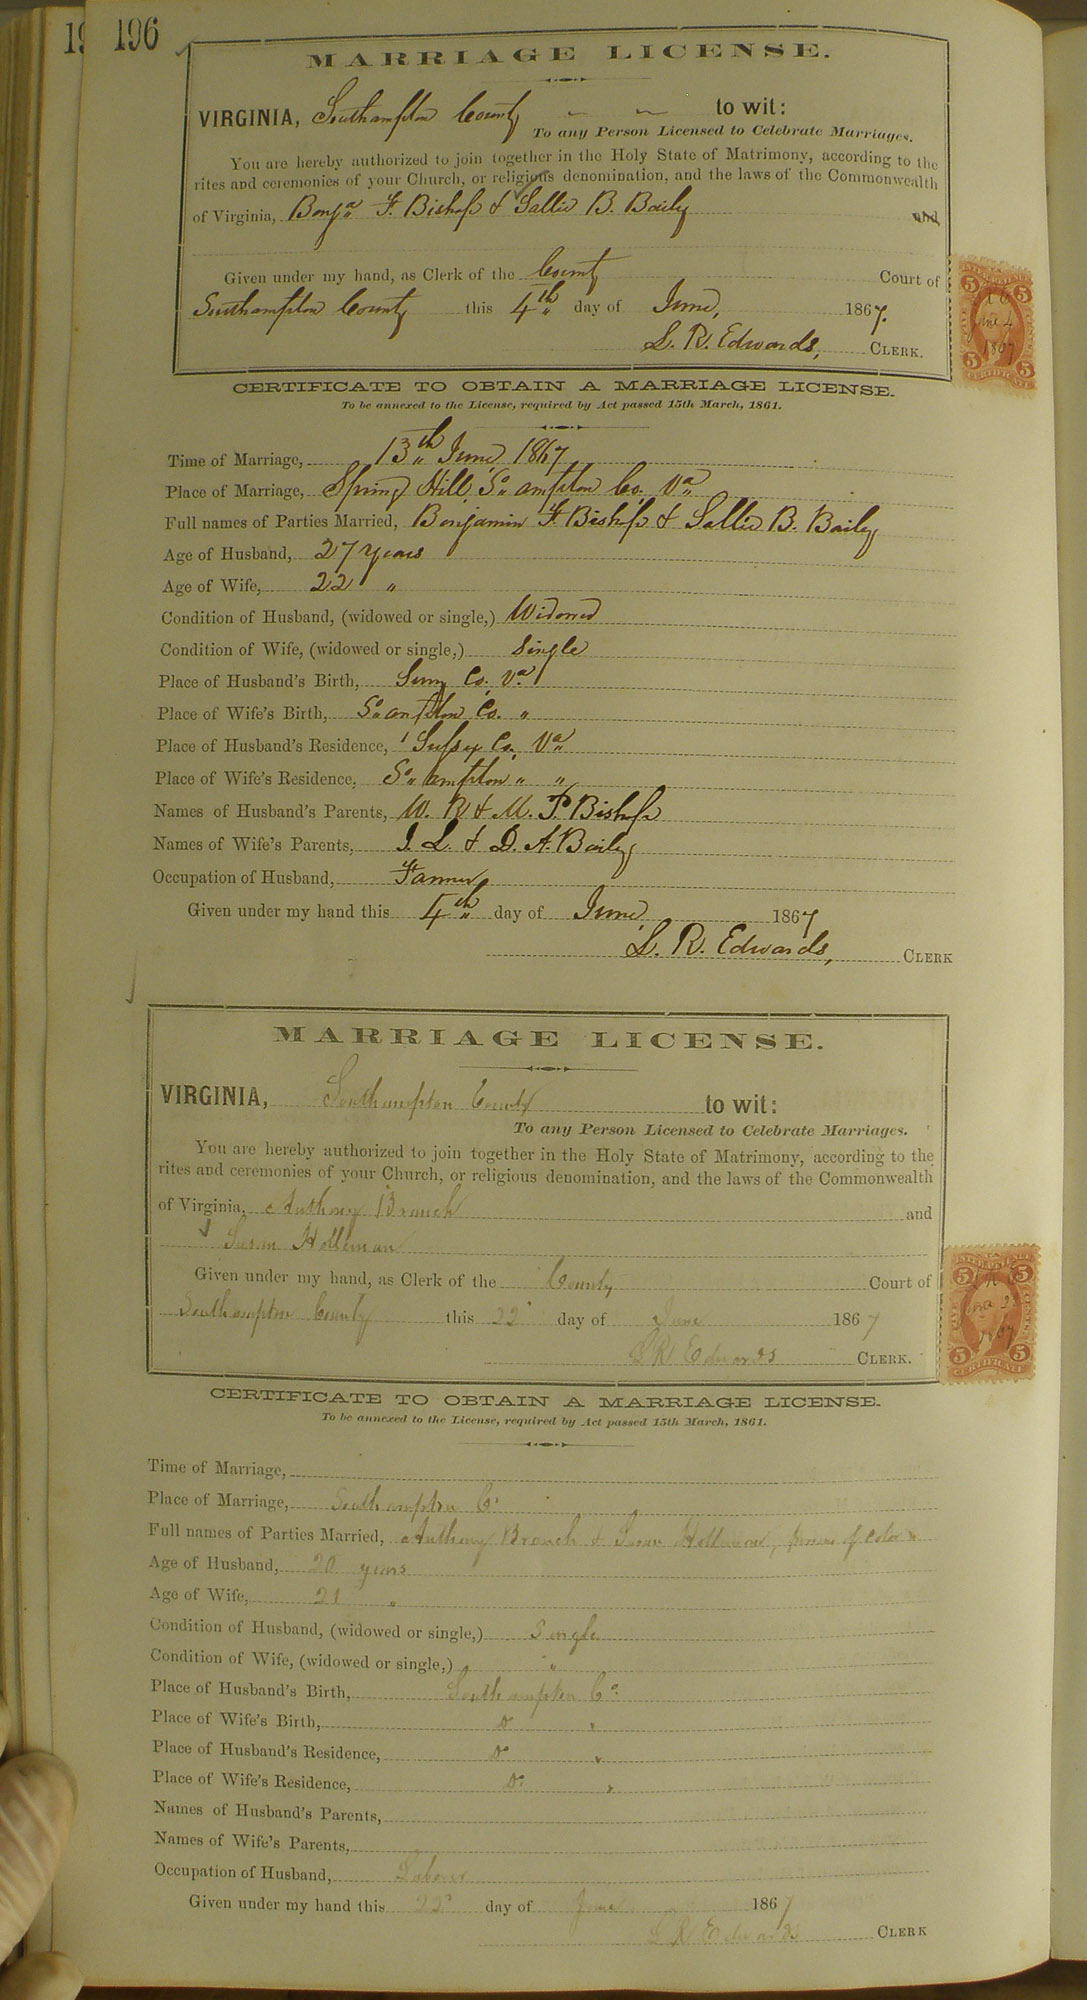 19 196
MARRIAGE LICENSE.
VIRGINIA, Southampton County to wit:
To any Person Licensed to Celebrate Marriages.
You are hereby authorized to join together in the Holy State of Matrimony, according to the
rites and ceremonies of your Church, or religious denomination, and the laws of the Commonwealth
of Virginia, Benja F. Bishop & Sallie B. Baily and
Given under my hand, as Clerk of the County Court of
Southampton County this 4th day of June, 1867.
L. R. Edwards, CLERK.
5 5
June 4
1867
5 5
CERTIFICATE
CERTIFICATE TO OBTAIN A MARRIAGE LICENSE.
To be annexed to the License, required by Act passed 15th March, 1861.
Time of Marriage, 13th June 1867
Place of Marriage, Spring Hill, So ampton Co. Va
Full names of Parties Married, Benjamin F. Bishop & Sallie B. Baily
Age of Husband, 27 years
Age of Wife, 22 "
Condition of Husband, (widowed or single,) Widowed
Condition of Wife, (widowed or single,) Single
Place of Husband's Birth, Surry Co. Va
Place of Wife's Birth, So ampton Co. "
Place of Husband's Residence, Sussex Co. Va
Place of Wife's Residence, So ampton " "
Names of Husband's Parents, W. B & M. P Bishop
Names of Wife's Parents, J. L. & D. A. Baily
Occupation of Husband, Farmer
Given under my hand this 4th day of June 1867
L. R. Edwards, CLERK
MARRIAGE LICENSE.
VIRGINIA, Southampton County to wit:
To any Person Licensed to Celebrate Marriages.
You are hereby authorized to join together in the Holy State of Matrimony, according to the
rites and ceremonies of your Church, or religious denomination, and the laws of the Commonwealth
of Virginia, Anthony Branch and
Susan Holleman
Given under my hand, as Clerk of the County Court of
Southampton County this 22 day of June 1867
L R Edwards CLERK.
5 5
June 22
1867
5 5
CERTIFICATE
CERTIFICATE TO OBTAIN A MARRIAGE LICENSE.
To be annexed to the License, required by Act passed 15th March, 1861.
Time of Marriage,
Place of Marriage, Southampton Co
Full names of Parties Married, Anthony Branch & Susan Holleman, persons of color
Age of Husband, 20 years
Age of Wife, 21 "
Condition of Husband, (widowed or single,) Single
Condition of Wife, (widowed or single,) "
Place of Husband's Birth, Southampton Co.
Place of Wife's Birth, Do "
Place of Husband's Residence, Do "
Place of Wife's Residence, Do "
Names of Husband's Parents,
Names of Wife's Parents,
Occupation of Husband, Laborer
Given under my hand this 22 day of June 1867
L R Edwards CLERK